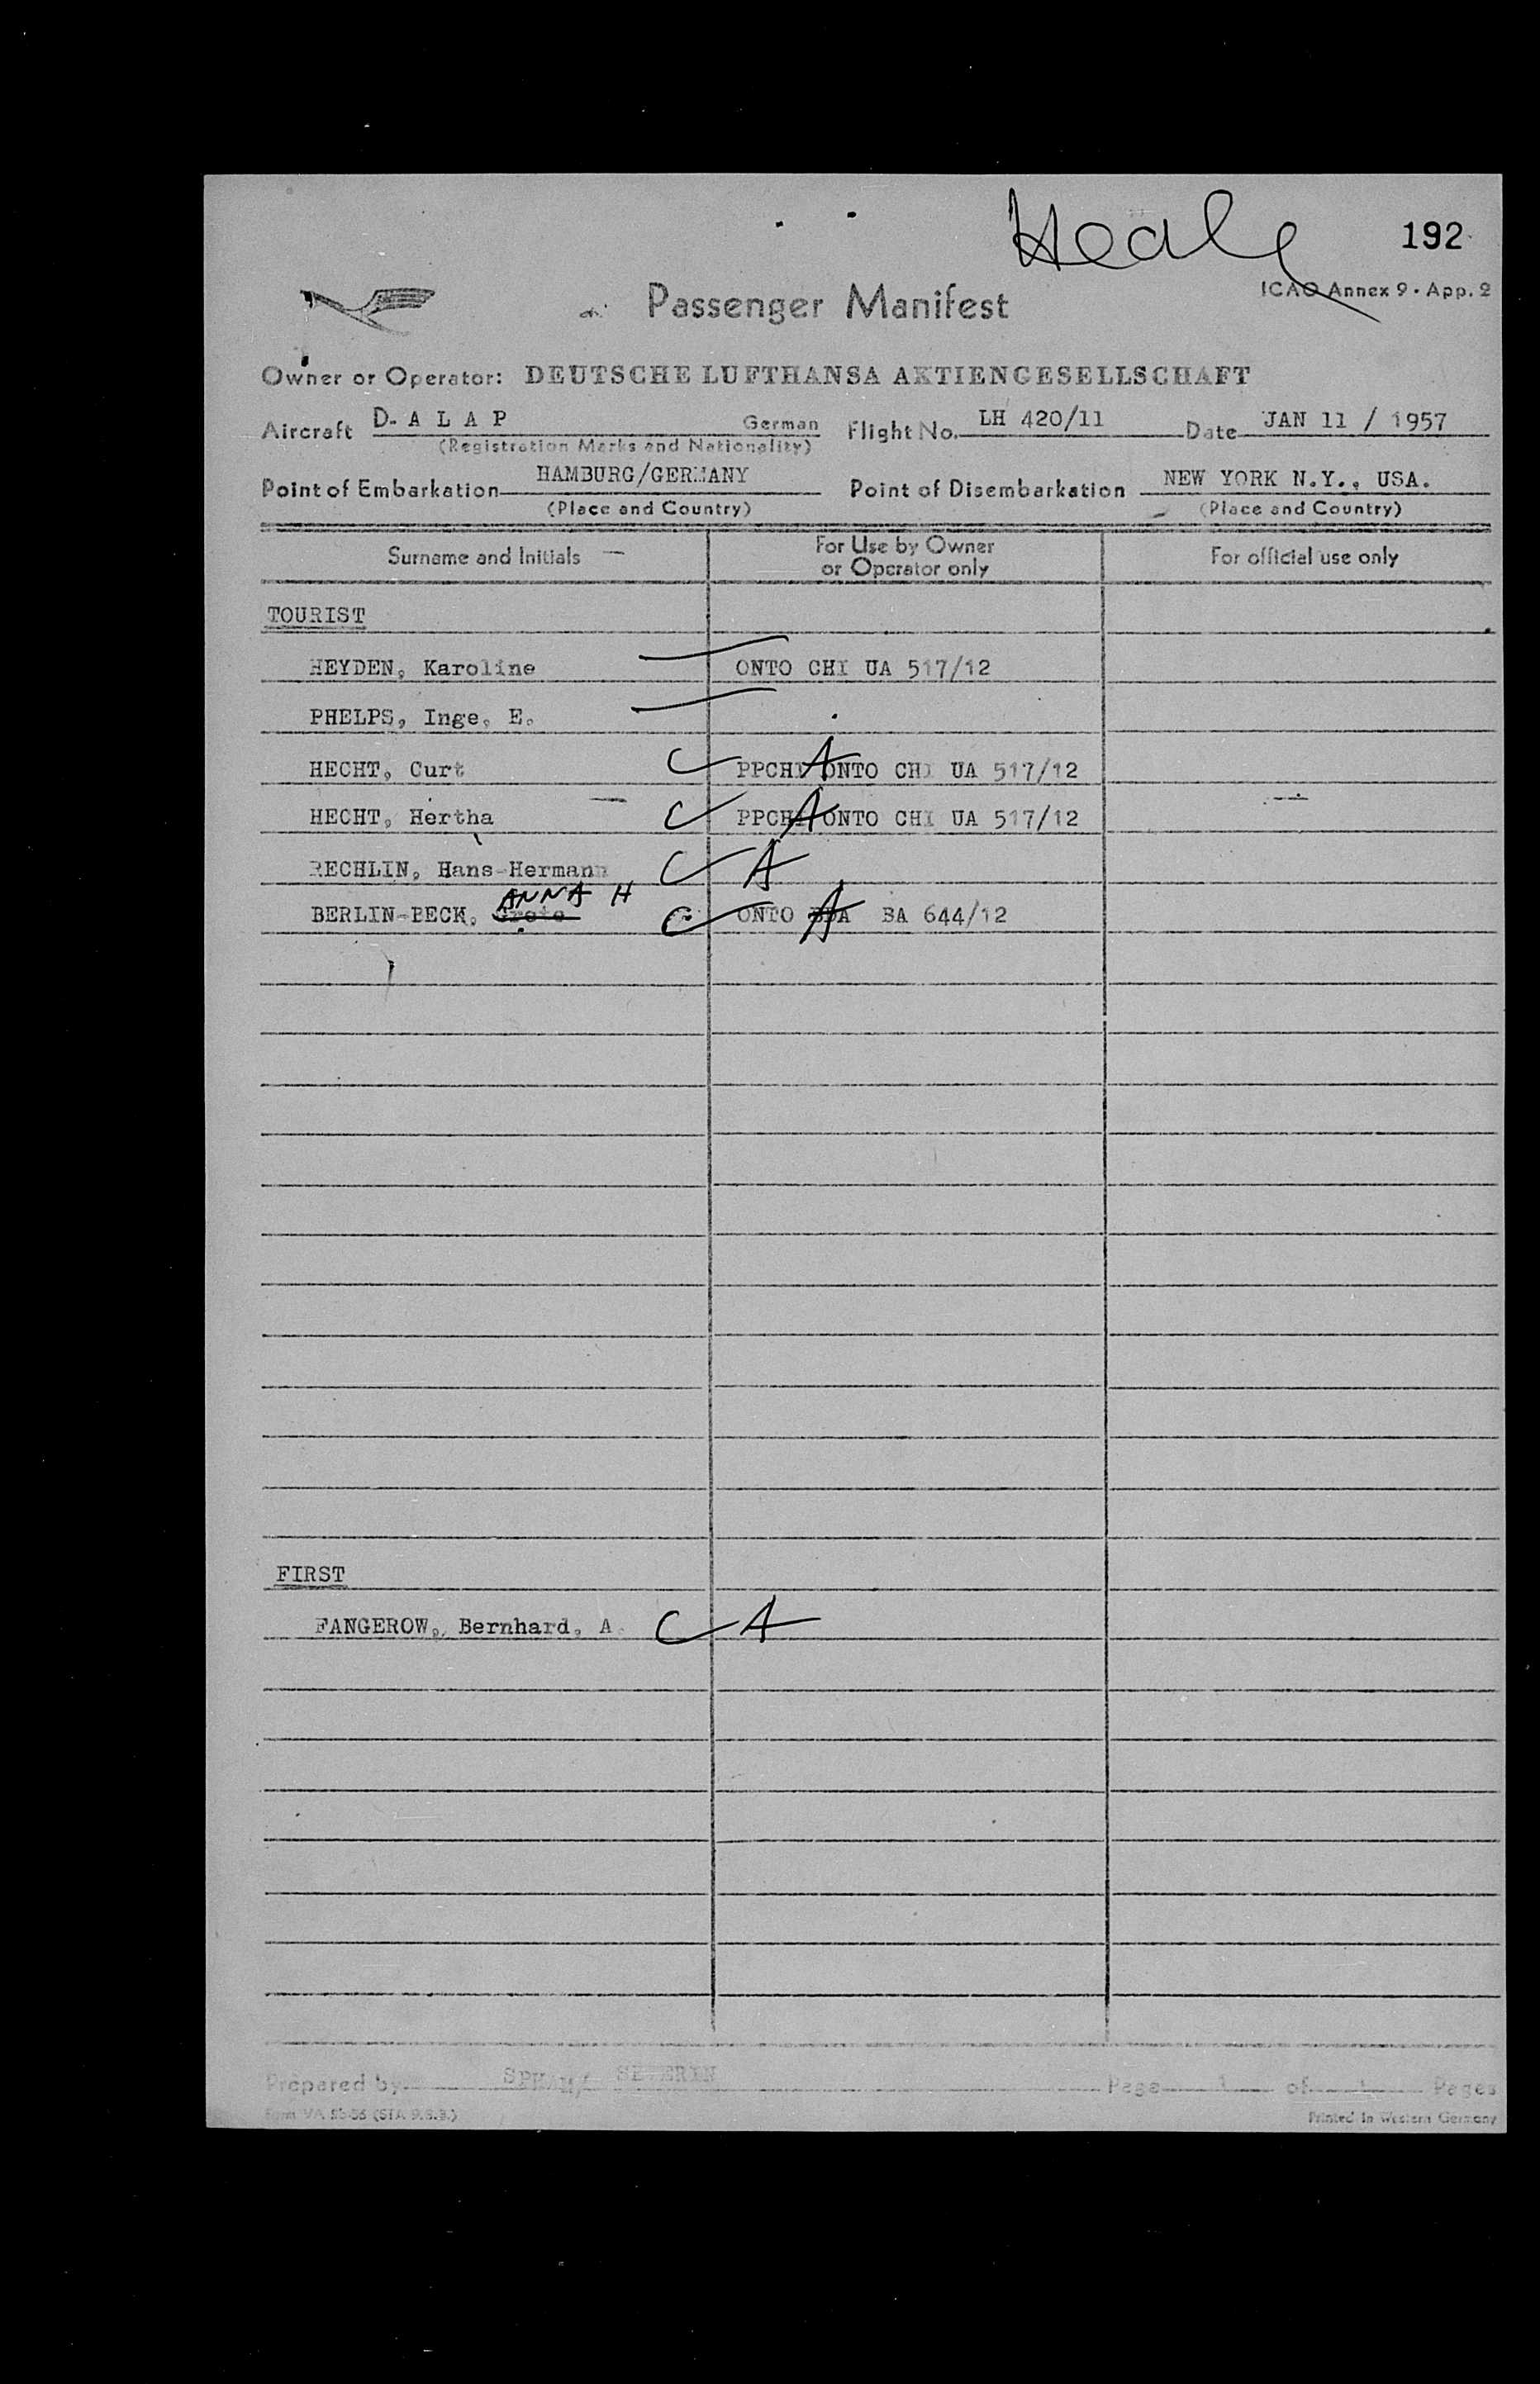 Healy 192
ICAO Annex 9 · App. 2
Passenger Manifest
Owner or Operator: DEUTSCHE LUFTHANSA AKTIENGESELLSCHAFT
Aircraft D- A L A P German Flight No. LH 420/11 Date JAN 11 / 1957
(Registration Marks and Nationality)
Point of Embarkation HAMBURG/GERMANY Point of Disembarkation NEW YORK N.Y., USA.
(Place and Country) (Place and Country)
Surname and Initials For Use by Owner or Operator only For official use only
TOURIST
HEYDEN, Karoline ONTO CHI UA 517/12
PHELPS, Inge, E.
HECHT, Curt C PPCHI A ONTO CHI UA 517/12
HECHT, Hertha C PPCHI A ONTO CHI UA 517/12
RECHLIN, Hans-Hermann C A
ANNA H
BERLIN-BECK, Grete C ONTO A BA 644/12
FIRST
FANGEROW, Bernhard, A. C A
Prepared by Page 1 of 1 Pages
Printed in Western Germany